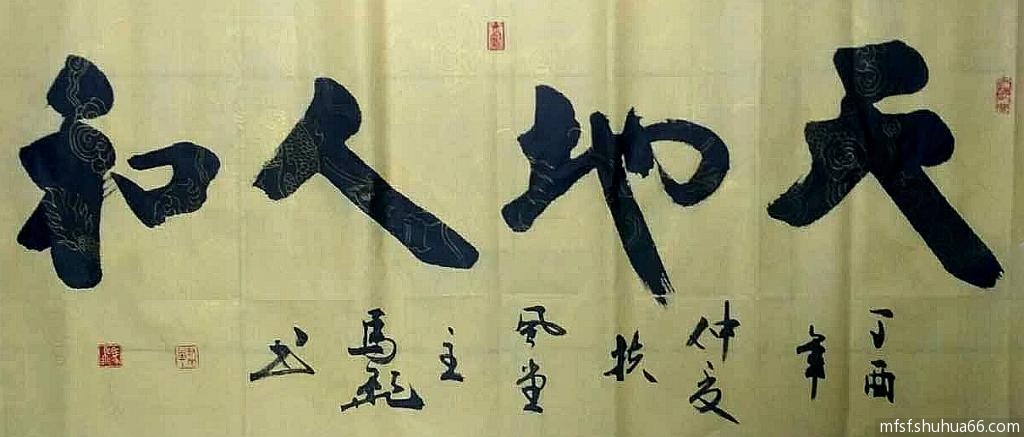 天地人和
丁酉
年
仲夏
扶
風堂
主
馬龍
书
mfsfshuhua66.com